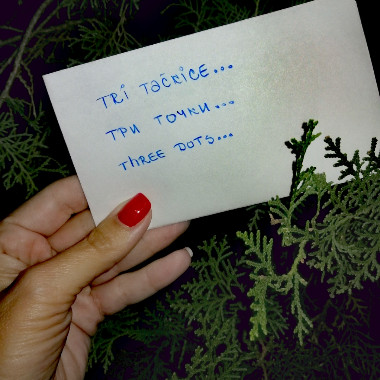 TRİ TəČKİCE...
ТРИ ТОЧКИ...
THREE DOTS...